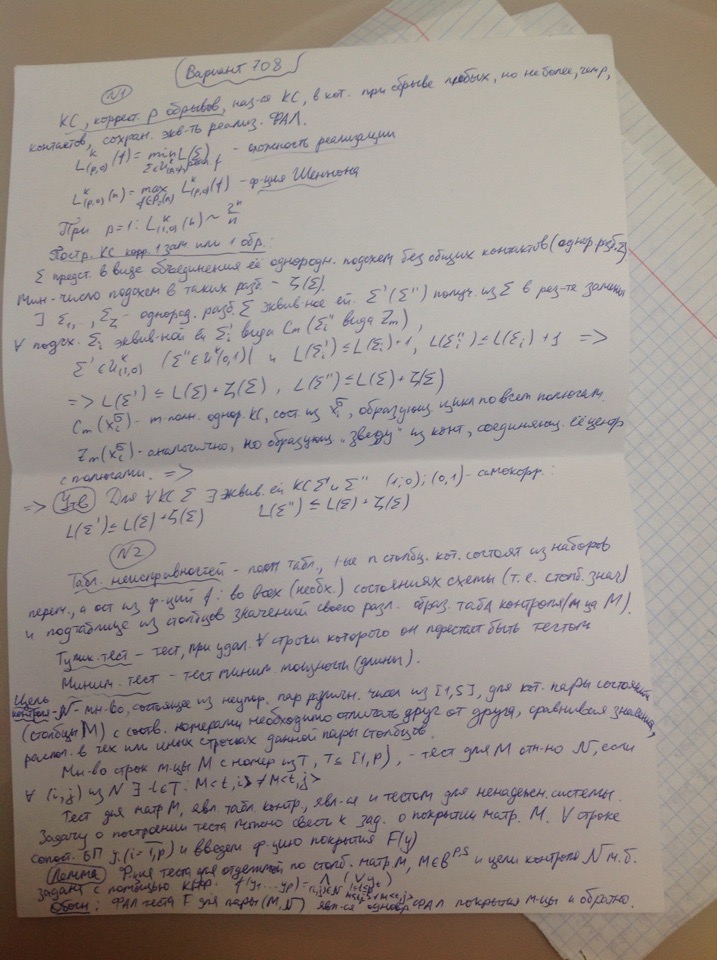 Вариант 708
N1
КС, коррект. p обрывов, наз-ся КС, в кот. при обрыве любых, но не более, чем p,
контактов, сохран. экв-ть реализ. ФАЛ.
L^k_(p,0)(f) = min L(Σ) - сложность реализации
L^k_(p,0)(n) = max L^k_(p,0)(f) - ф-ция Шеннона
f∈P₂(n)
При p=1: L^k_(1,0)(n) ~ 2^n/n
Постр. КС корр. 1 зам или 1 обр.:
Σ предст. в виде объединения её однородн. подсхем без общих контактов (однор. разб. Σ)
Мин. число подсхем в таких разб. - ζ(Σ).
∃ Σ₁, .., Σ_ζ - однород. разб. Σ эквив-ное ей. Σ' (Σ'') получ. из Σ в рез-те замены
∀ подсх. Σi эквив-ной ей Σi' вида Cm (Σi'' вида Zm),
Σ'∈U^k_(1,0) (Σ''∈U^k(0,1)) и L(Σi') ≤ L(Σi)+1, L(Σi'') ≤ L(Σi)+1 =>
=> L(Σ') ≤ L(Σ)+ζ(Σ), L(Σ'') ≤ L(Σ)+ζ(Σ)
Cm(xi^σ) - m-полн. однор. КС, сост. из xi^σ, образующ. цикл по всем полюсам.
Zm(xi^σ) - аналогично, но образующ. "звезду" из конт., соединяющ. её центр
с полюсами. =>
=> Утв Для ∀ КС Σ ∃ эквив. ей КС Σ' и Σ'' (1,0); (0,1) - самокорр.:
L(Σ') ≤ L(Σ)+ζ(Σ) L(Σ'') ≤ L(Σ)+ζ(Σ)
N2
Табл. неисправностей - табл., 1-ые n столбц. кот. состоят из наборов
перем., а ост из ф-ций f: во всех (необх.) состояниях схемы (т.е. столб. знач)
и подтаблице из столбцов значений своего разл. образ. табл контроля (м-ца M).
Тупик. тест - тест, при удал. ∀ строки которого он перестает быть тестом
Миним. тест - тест миним. мощности (длины).
Цель контроля - N - мн-во, состоящее из неупор. пар различн. чисел из [1,S], для кот. пары состояний
(столбцы M) с соотв. номерами необходимо отличать друг от друга, сравнивая значения,
распол. в тех или иных строчках данной пары столбцов.
Мн-во строк м-цы M с номер из T, T ⊆ [1,p], - тест для M отн-но N, если
∀ (i,j) из N ∃ t∈T: M<t,i> ≠ M<t,j>
Тест для матр M, явл. табл. контр., явл-ся и тестом для ненадежн. системы.
Задачу о построении теста можно свести к зад. о покрытии матр. M. ∀ строке
сопост. БП yi (i=1,p) и введем ф-цию покрытия F(y)
Лемма Ф-ция теста для отделимой по столб. матр M, M∈B^{p,s} и цели контроля N м.б.
задана с помощью КНФ. f(y₁...yp) = ∧ (∨ yt)
Обосн: ФАЛ теста F для пары (M,N) явл-ся ФАЛ покрытия м-цы и обратно.